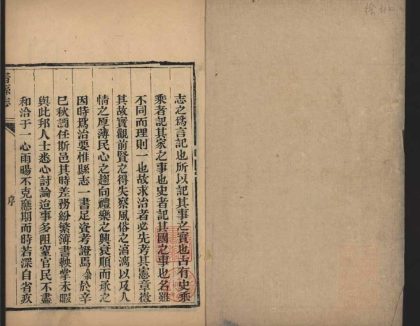 志之爲言記也所以記其事之實也古有史乘
乘者記其家之事也史者記其國之事也名雖
不同而理則一也故求治者必先考其憲章徵
其故實觀前賢之得失察風俗之淳漓以及人
情之厚薄民心之趨向禮樂之興衰順而承之
因時爲治要惟縣志一書足資考證焉余於辛
巳秋調任斯邑其時差務紛繁簿書鞅掌未暇
與此邦人士悉心討論追事多阻窒官民不盡
和洽于一心雨暘不克應期而時若深自省攷
縣志
序